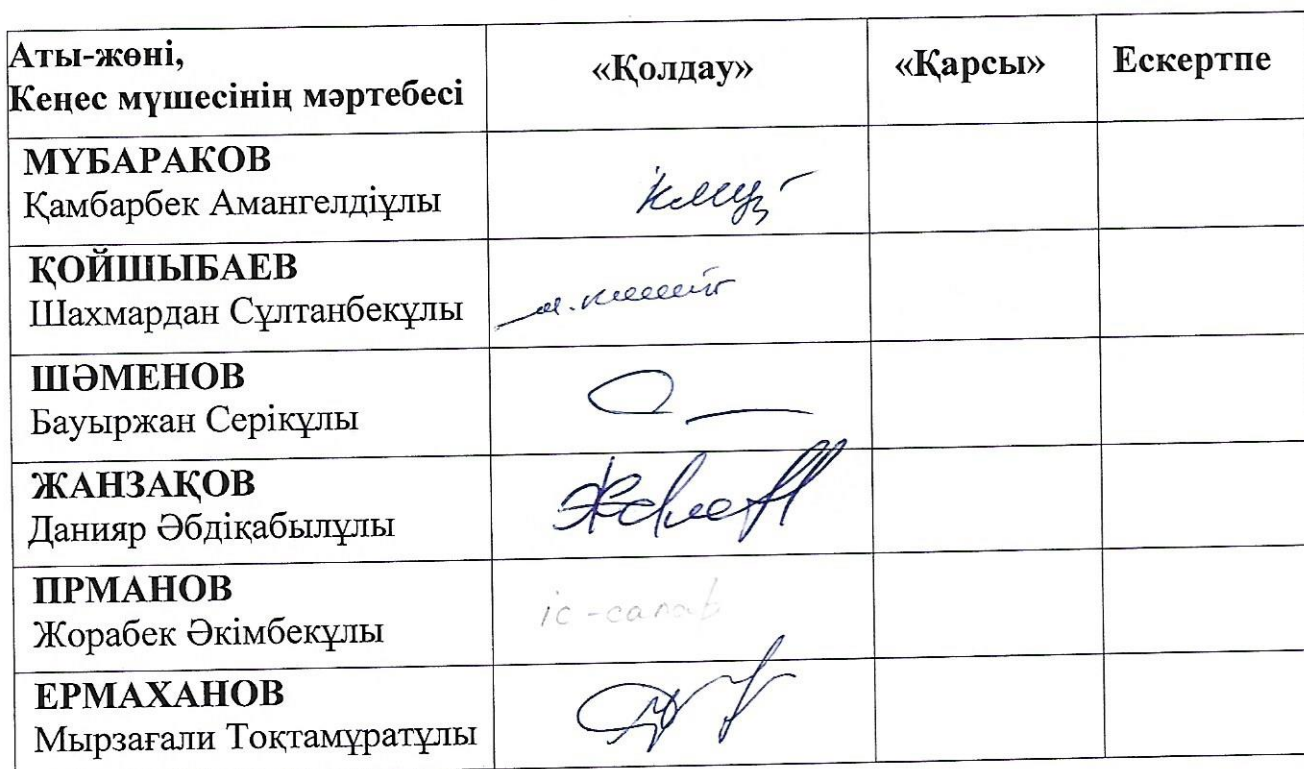 Аты-жөні,
Кеңес мүшесінің мәртебесі
«Қолдау»
«Қарсы»
Ескертпе
МҮБАРАКОВ
Қамбарбек Амангелдіұлы
ҚОЙШЫБАЕВ
Шахмардан Сұлтанбекұлы
ШӘМЕНОВ
Бауыржан Серікұлы
ЖАНЗАҚОВ
Данияр Әбдіқабылұлы
ПРМАНОВ
Жорабек Әкімбекұлы
іс-сапар
ЕРМАХАНОВ
Мырзағали Тоқтамұратұлы